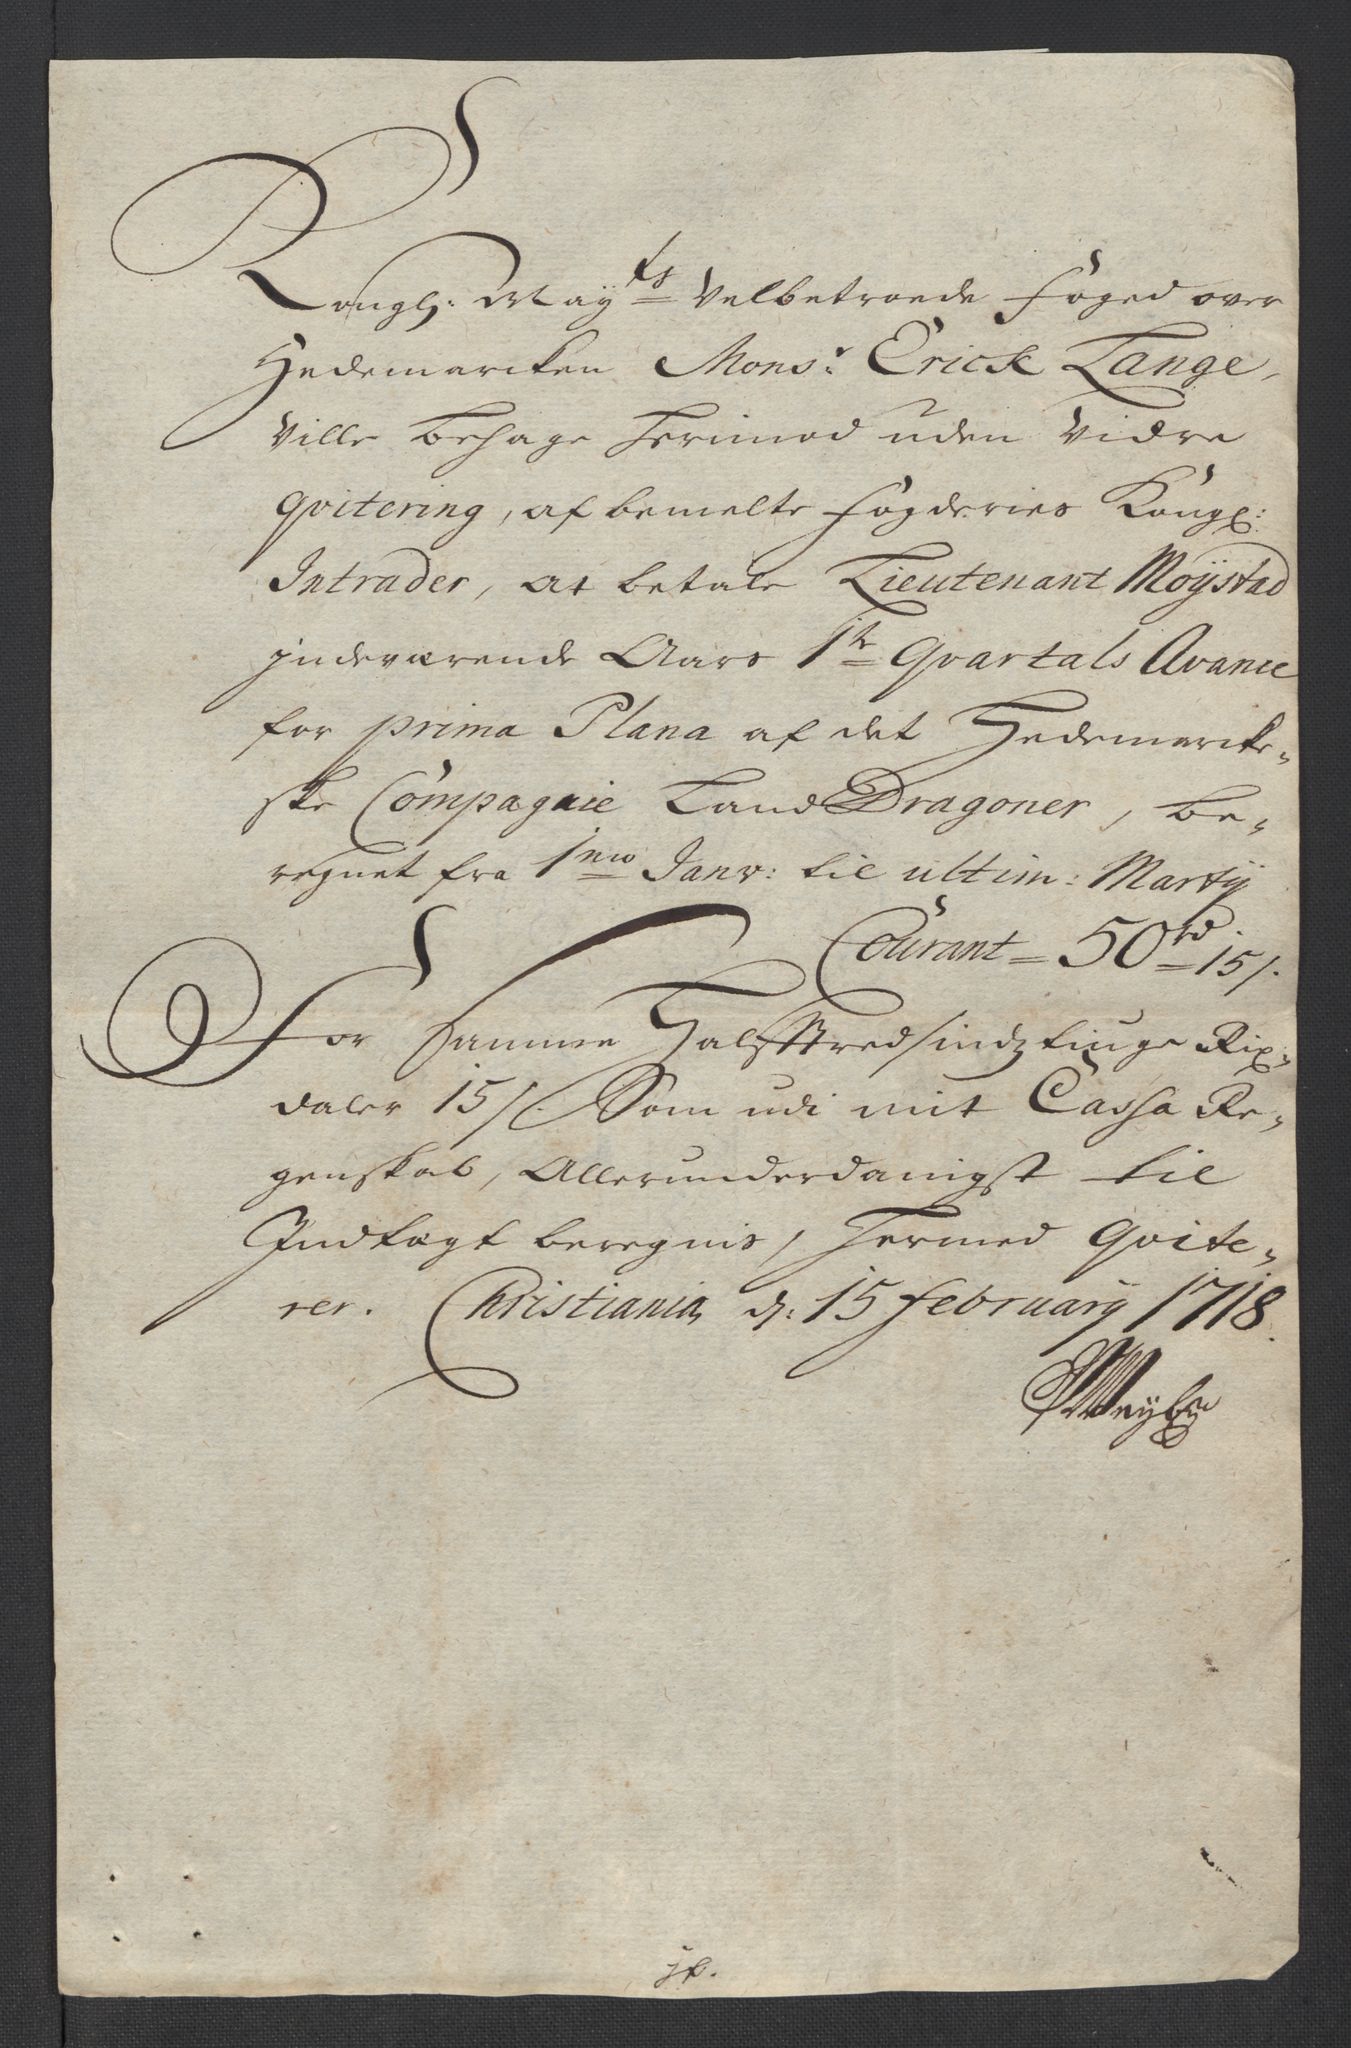 Kongl: May^ts Velbetroede Foged over
Hedemarcken Mons^r: Erick Lange,
Ville behage herimod uden Vidre
qvitering, af bemelte Fogderies Kongl:
Intrader, at betale Lieutenant Moÿstad
jndeværende Aars 1^te qvartals Avance
for prima Plana af det Hedemarcke-
ske Compagnie Land Dragoner, be-
regnet fra 1^mo Janv: til ultim: Martÿ
Courant = 50^rd = 15 s.
For samme Halftredsindztiuge Rix-
daler 15 s. Som udi mit Cassa Re-
genskab, Allerunderdanigst til
Indtægt beregnis, hermed qvite-
rer. Christiania d: 15 februarÿ 1718.